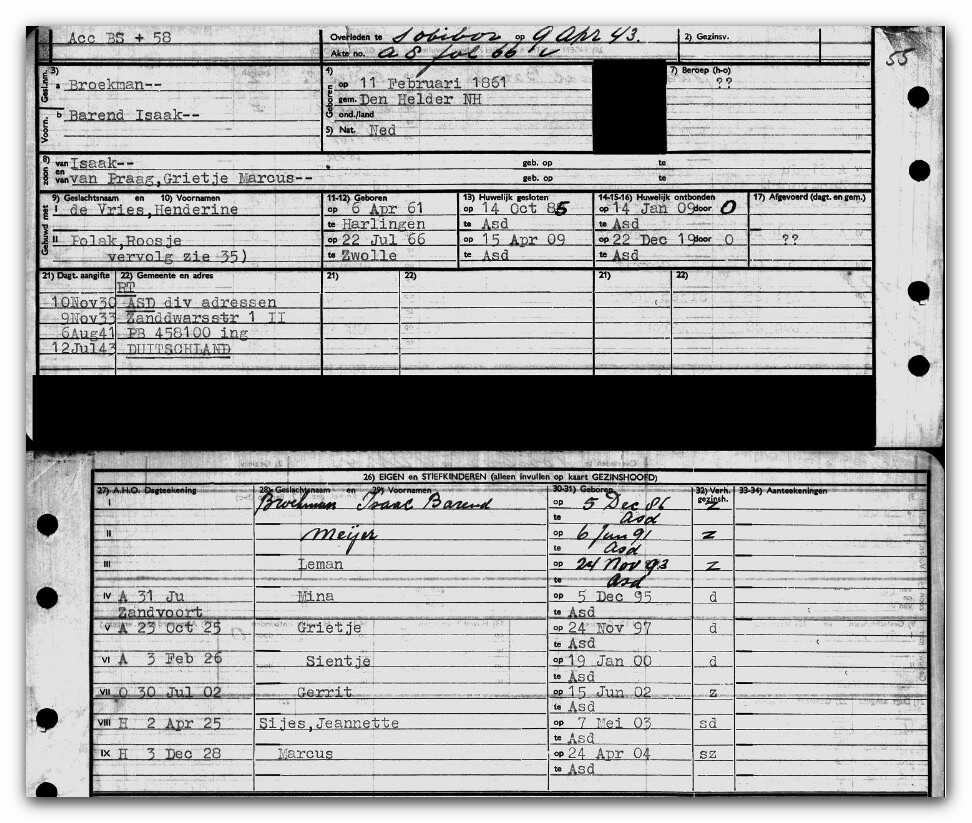 Acc BS + 58 Overleden te Sobibor op 9 Apr 43. 2) Gezinsv. 55
Akte no. a 8 fol 66 v
3) Gesl.nm. a Broekman-- 4) Geboren op 11 Februari 1861 7) Beroep (h-o)
gem. Den Helder NH ??
Voorn. b Barend Isaak-- ond./land
5) Nat. Ned
8) zoon van Isaak-- geb. op te
en van van Praag,Grietje Marcus-- geb. op te
9) Geslachtsnaam en 10) Voornamen 11-12) Geboren 13) Huwelijk gesloten 14-15-16) Huwelijk ontbonden 17) Afgevoerd (dagt. en gem.)
Gehuwd met I de Vries,Henderine op 6 Apr 61 op 14 Oct 85 op 14 Jan 09 door O
te Harlingen te Asd te Asd
II Polak,Roosje op 22 Jul 66 op 15 Apr 09 op 22 Dec 19 door O ??
vervolg zie 35) te Zwolle te Asd te Asd
21) Dagt. aangifte 22) Gemeente en adres 21) 22) 21) 22)
RT
10Nov30 ASD div adressen
9Nov33 Zanddwarsstr 1 II
6Aug41 PB 458100 ing
12Jul43 DUITSCHLAND
26) EIGEN en STIEFKINDEREN (alleen invullen op kaart GEZINSHOOFD)
27) A.H.O. Dagteekening 28) Geslachtsnaam en 29) Voornamen 30-31) Geboren 32) Verh. gezinsh. 33-34) Aanteekeningen
I Broekman Isaac Barend op 5 Dec 86 z
te Asd
II Meijer op 6 Jun 91 z
te Asd
III Leman op 24 Nov 93 z
te Asd
IV A 31 Ju Mina op 5 Dec 95 d
Zandvoort te Asd
V A 23 Oct 25 Grietje op 24 Nov 97 d
te Asd
VI A 3 Feb 26 Sientje op 19 Jan 00 d
te Asd
VII O 30 Jul 02 Gerrit op 15 Jun 02 z
te Asd
VIII H 2 Apr 25 Sijes,Jeannette op 7 Mei 03 sd
te Asd
IX H 3 Dec 28 Marcus op 24 Apr 04 sz
te Asd